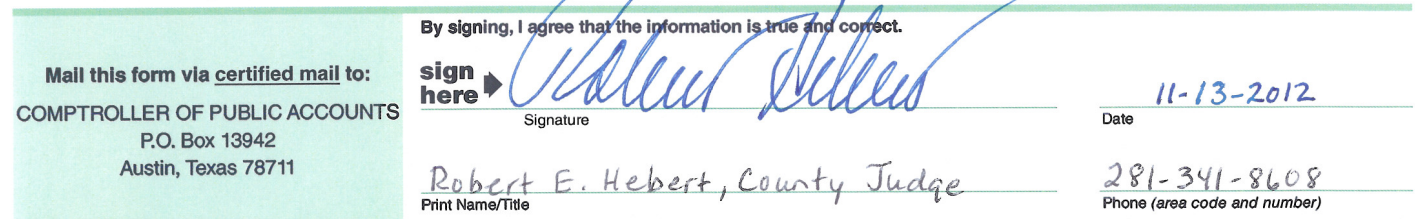 Mail this form via certified mail to:
COMPTROLLER OF PUBLIC ACCOUNTS
P.O. Box 13942
Austin, Texas 78711
By signing, I agree that the information is true and correct.
sign
here
Robert Hebert
Signature
11-13-2012
Date
Robert E. Hebert, County Judge
Print Name/Title
281-341-8608
Phone (area code and number)